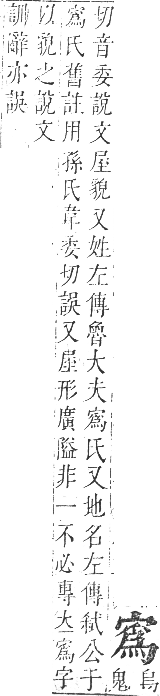 寪
烏
鬼
切音委說文屋貌又姓左傳魯大夫寪氏又地名左傳弑公于
寪氏舊註用孫氏韋委切誤又屋形廣隘非一不必專大寪字
以貌之說文
訓辭亦誤